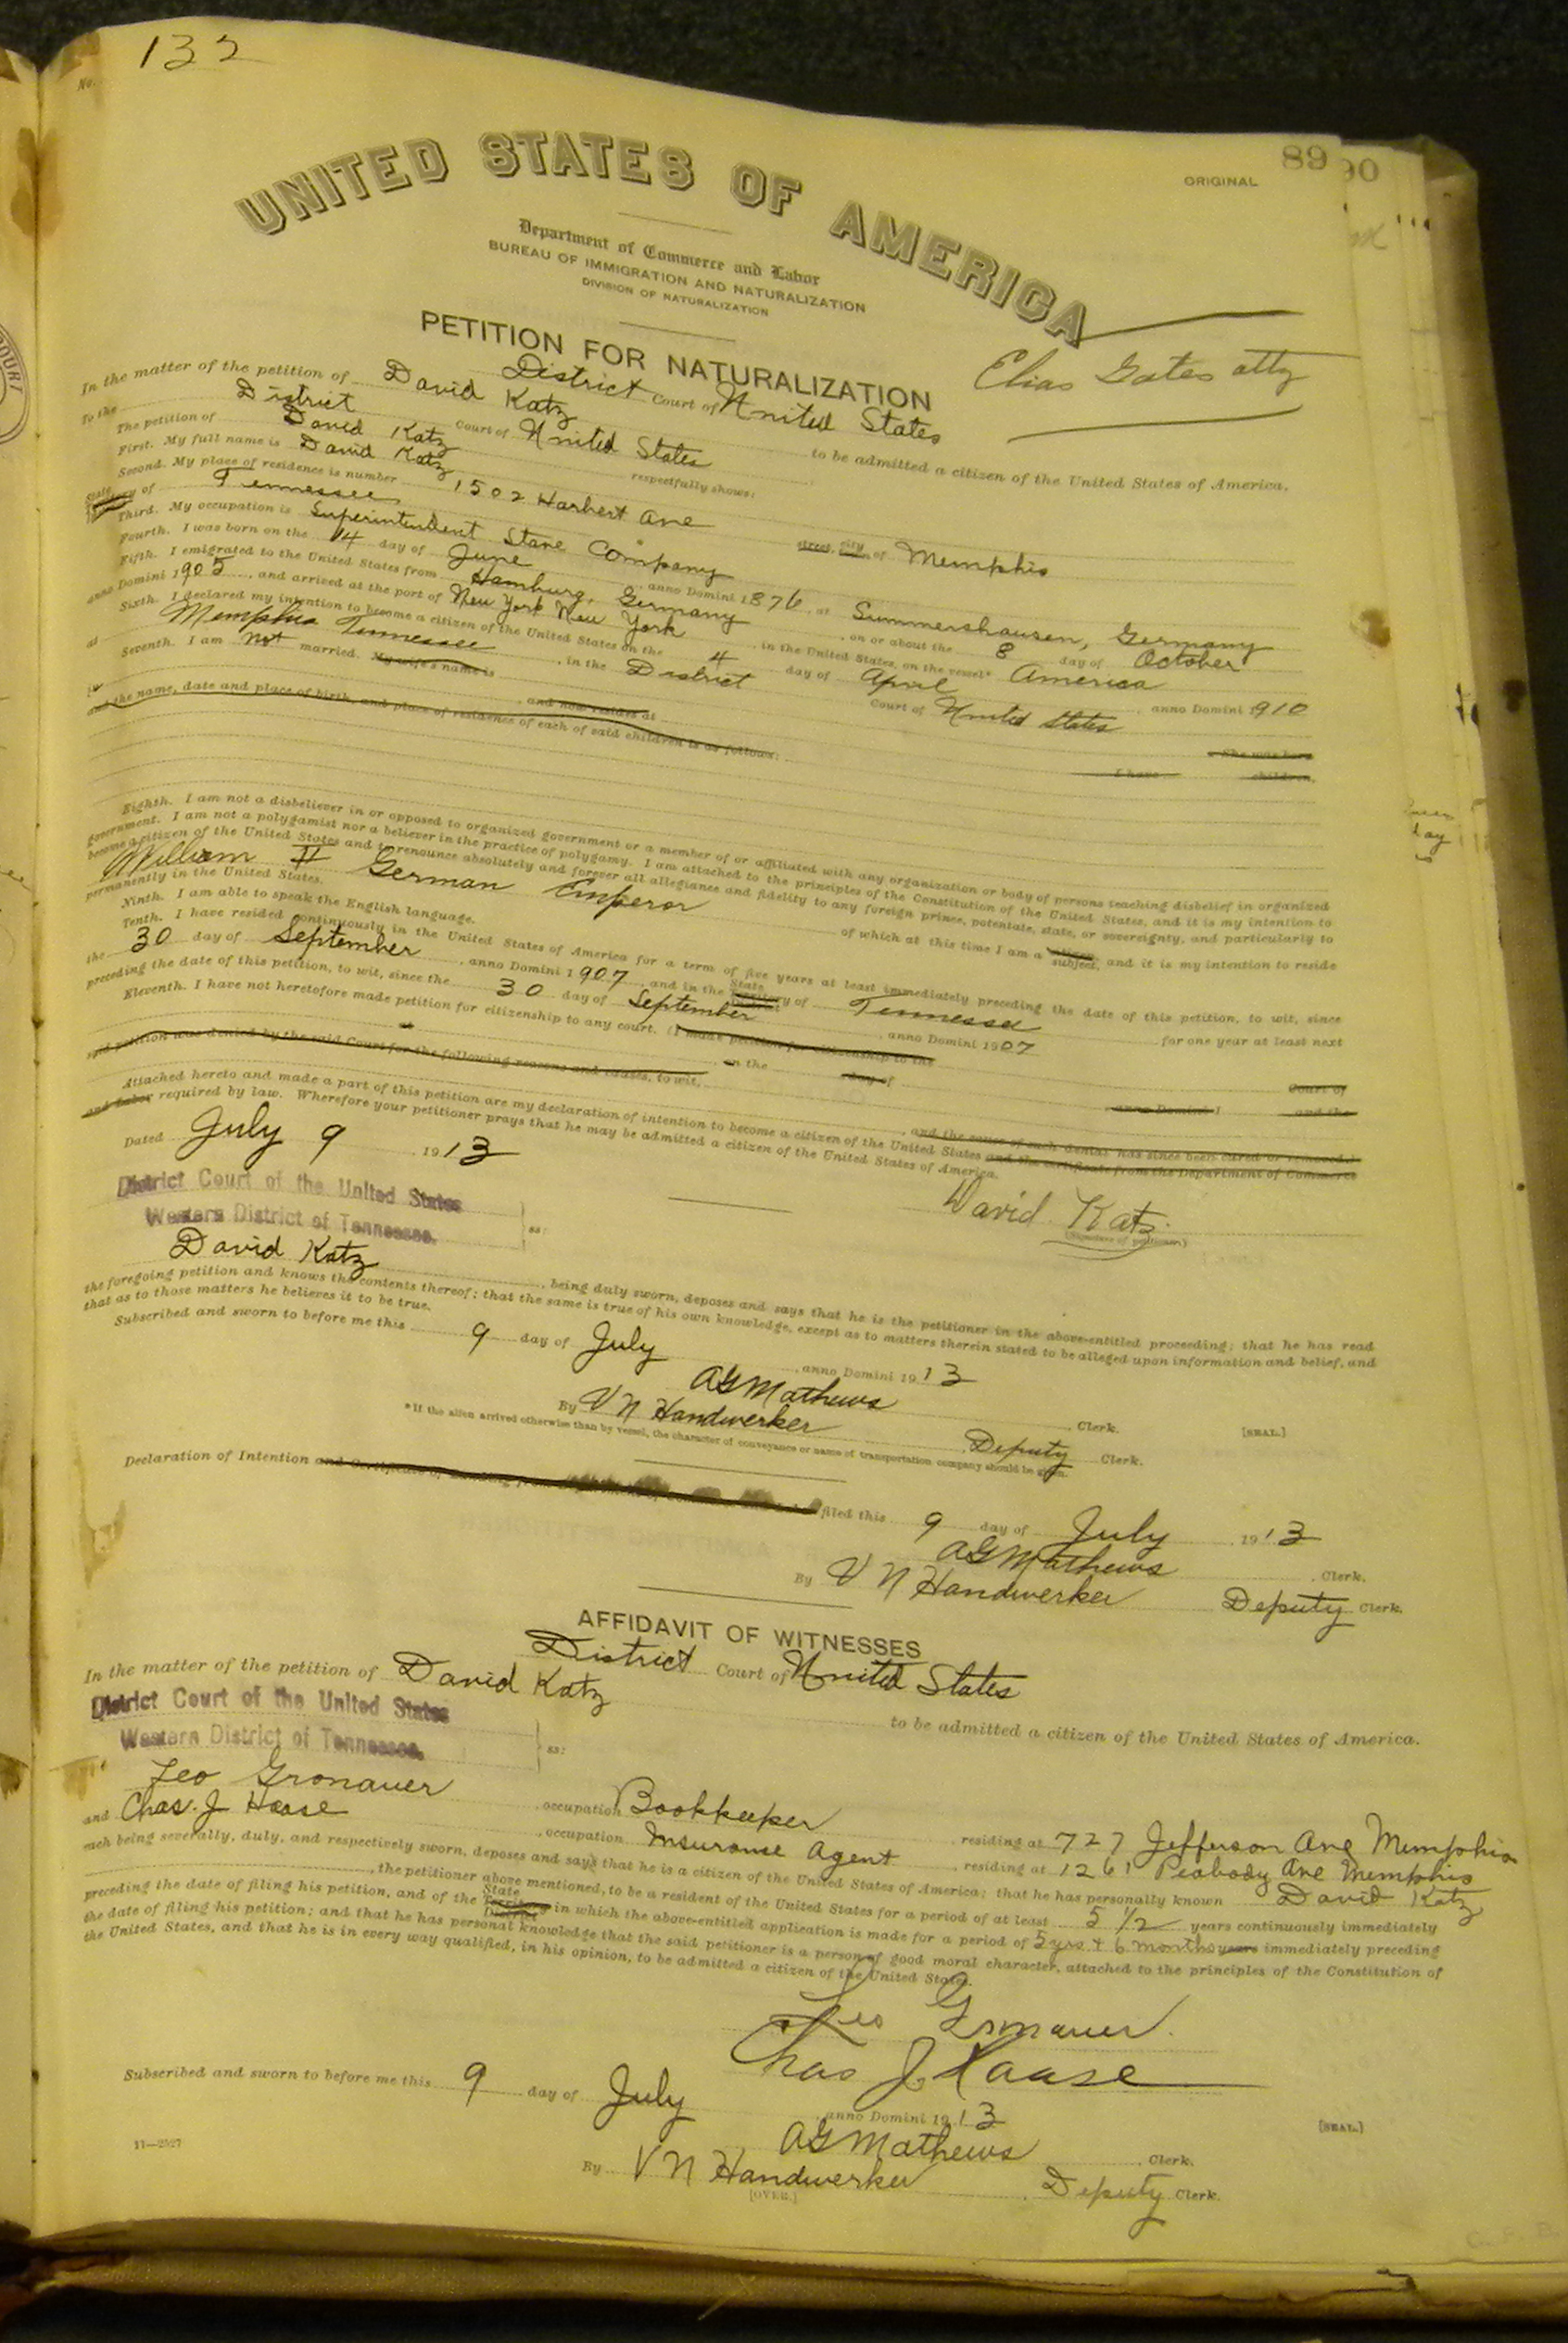 132
No.
89
90
ORIGINAL
UNITED STATES OF AMERICA
Department of Commerce and Labor
BUREAU OF IMMIGRATION AND NATURALIZATION
DIVISION OF NATURALIZATION
PETITION FOR NATURALIZATION
Elias Gates atty
District Court of United States
In the matter of the petition of David Katz to be admitted a citizen of the United States of America.
To the District Court of United States
The petition of David Katz respectfully shows:
First. My full name is David Katz
Second. My place of residence is number 1502 Harbert Ave street, city of Memphis
State of Tennessee
Third. My occupation is Superintendent Stave Company
Fourth. I was born on the 14 day of June anno Domini 1876, at Summershausen, Germany
Fifth. I emigrated to the United States from Hamburg, Germany, on or about the 8 day of October
anno Domini 1905, and arrived at the port of New York New York, in the United States, on the vessel* America
Sixth. I declared my intention to become a citizen of the United States on the 4 day of April, anno Domini 1910
at Memphis Tennessee, in the District Court of United States
Seventh. I am not married. My wife's name is She was born
, and now resides at I have children,
and the name, date and place of birth, and place of residence of each of said children is as follows:
Eighth. I am not a disbeliever in or opposed to organized government or a member of or affiliated with any organization or body of persons teaching disbelief in organized
government. I am not a polygamist nor a believer in the practice of polygamy. I am attached to the principles of the Constitution of the United States, and it is my intention to
become a citizen of the United States and to renounce absolutely and forever all allegiance and fidelity to any foreign prince, potentate, state, or sovereignty, and particularly to
William II German Emperor of which at this time I am a subject, and it is my intention to reside
permanently in the United States.
Ninth. I am able to speak the English language.
Tenth. I have resided continuously in the United States of America for a term of five years at least immediately preceding the date of this petition, to wit, since
the 30 day of September, anno Domini 1907, and in the State Territory of Tennessee for one year at least next
preceding the date of this petition, to wit, since the 30 day of September, anno Domini 1907
Eleventh. I have not heretofore made petition for citizenship to any court. (I made petition for citizenship to the Court of
on the day of anno Domini 1 and the
said petition was denied by the said Court for the following reasons and causes, to wit, , and the cause of such denial has since been cured or removed.)
Attached hereto and made a part of this petition are my declaration of intention to become a citizen of the United States and the certificate from the Department of Commerce
and Labor required by law. Wherefore your petitioner prays that he may be admitted a citizen of the United States of America.
Dated July 9 1913
David Katz
(Signature of petitioner)
District Court of the United States
Western District of Tennessee. ss:
David Katz, being duly sworn, deposes and says that he is the petitioner in the above-entitled proceeding; that he has read
the foregoing petition and knows the contents thereof; that the same is true of his own knowledge, except as to matters therein stated to be alleged upon information and belief, and
that as to those matters he believes it to be true.
Subscribed and sworn to before me this 9 day of July, anno Domini 1913
AG Mathews Clerk. [SEAL.]
By V N Handwerker Deputy Clerk.
*If the alien arrived otherwise than by vessel, the character of conveyance or name of transportation company should be given.
Declaration of Intention and Certificate of Landing from Department of Commerce and Labor filed this 9 day of July 1913
AG Mathews Clerk.
By V N Handwerker Deputy Clerk.
AFFIDAVIT OF WITNESSES
District Court of United States
In the matter of the petition of David Katz to be admitted a citizen of the United States of America.
District Court of the United States
Western District of Tennessee. ss:
Leo Gronauer, occupation Bookkeeper, residing at 727 Jefferson Ave Memphis
and Chas. J Haase, occupation Insurance Agent, residing at 1261 Peabody Ave Memphis
each being severally, duly, and respectively sworn, deposes and says that he is a citizen of the United States of America; that he has personally known David Katz
, the petitioner above mentioned, to be a resident of the United States for a period of at least 5 1/2 years continuously immediately
preceding the date of filing his petition, and of the State Territory District in which the above-entitled application is made for a period of 5 yrs + 6 months years immediately preceding
the date of filing his petition; and that he has personal knowledge that the said petitioner is a person of good moral character, attached to the principles of the Constitution of
the United States, and that he is in every way qualified, in his opinion, to be admitted a citizen of the United States.
Leo Gronauer.
Chas J. Haase
Subscribed and sworn to before me this 9 day of July, anno Domini 1913
AG Mathews Clerk. [SEAL.]
11—2527
By V N Handwerker Deputy Clerk.
[OVER.]